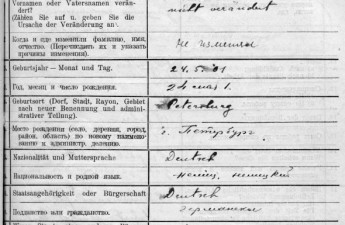 Vornamen oder Vatersnamen verän-
dert?
(Zählen Sie auf u. geben Sie die
Ursache der Veränderung an.
nicht verändert
Когда и где изменили фамилию, имя,
отчество. (Перечислить их и указать
причины изменения).
не изменял
Geburtsjahr — Monat und Tag.
24. 5. 01
Год, месяц и число рождения.
24 мая 1.
Geburtsort (Dorf, Stadt, Rayon, Gebiet
nach neuer Benennung und admini-
strativer Teilung).
Petersburg
Место рождения (село, деревня, город,
район, область) по новому наименова-
нию и администр. делению.
г. Петербург.
Nazionalität und Muttersprache
Deutsch
Национальность и родной язык.
немец, немецкий
Staatsangehörigkeit oder Bürgerschaft
Deutsch
Подданство или гражданство.
германское